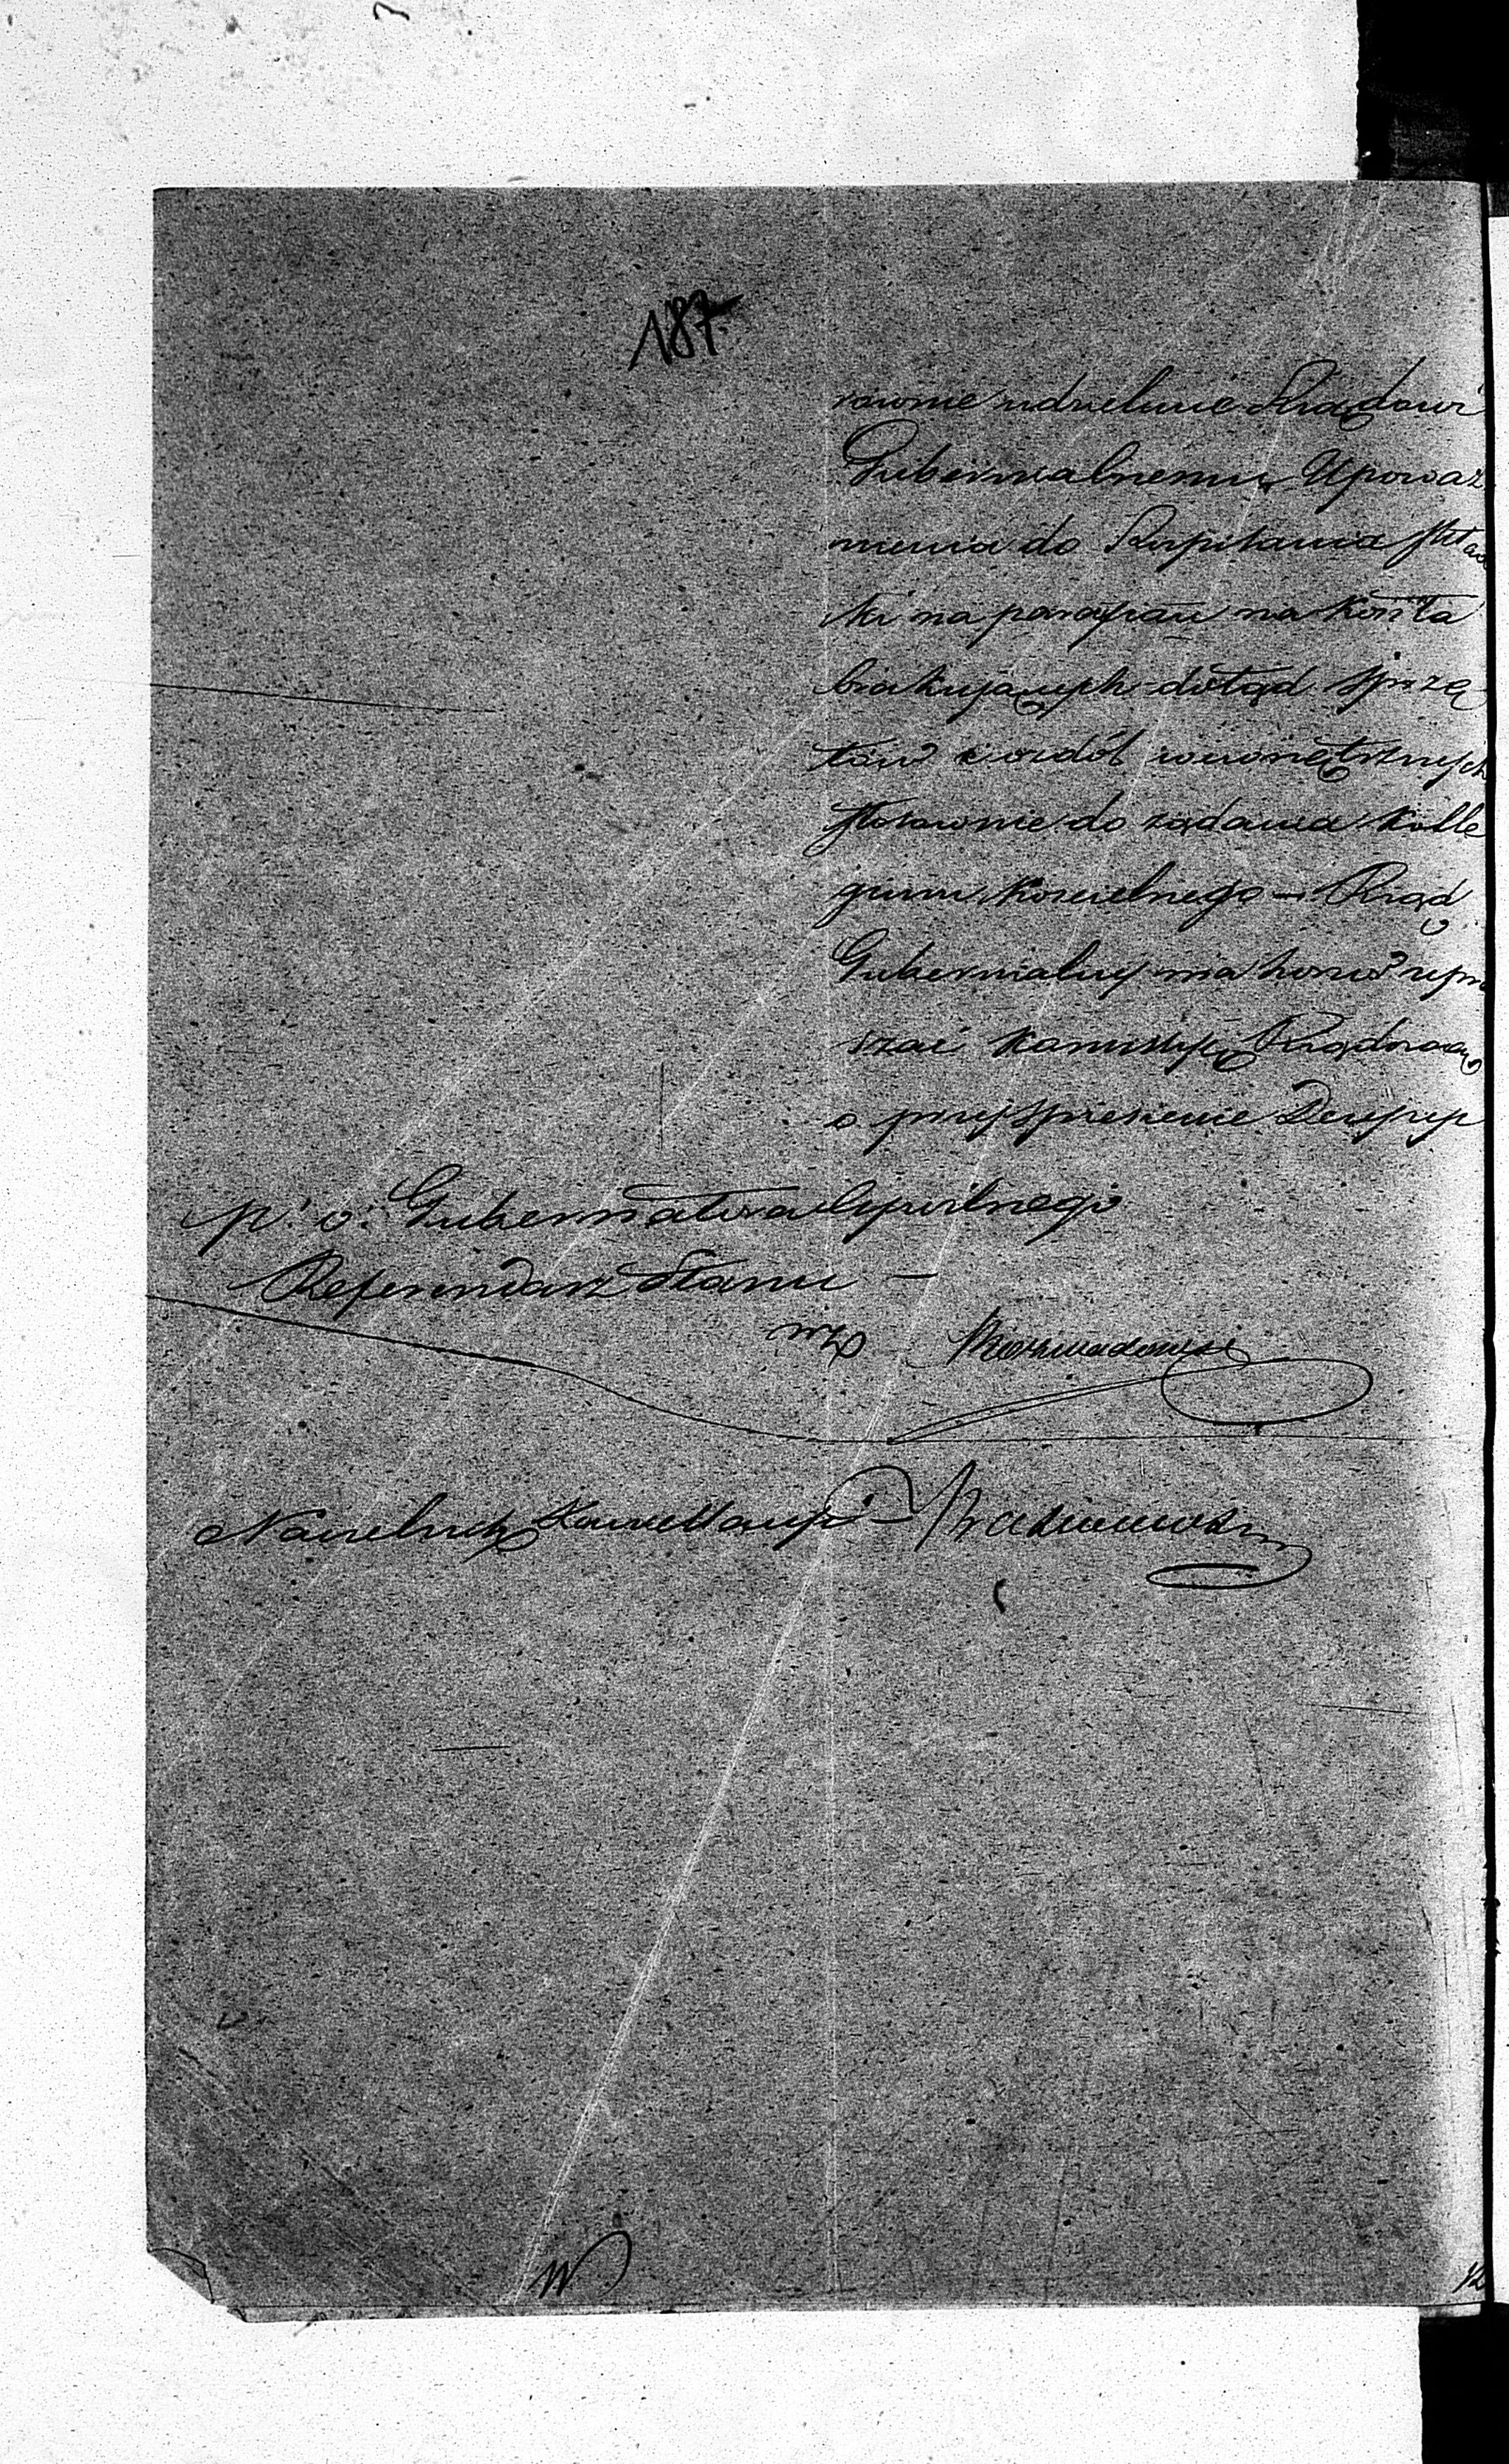 187.
rownie udzielenie Rządowi
Gubernialnemu Upoważ
nienia do Rozpisania skład
ki na parafian na koszta
brakujących dotąd sprzę
tów i ozdób wewnętrznych
stosownie do żądania Kolle
gium Kościelnego — Rząd
Gubernialny ma honor upra
szać Kommissyą Rządową
o przyspieszenie Decyzyi
p. o. Gubernatora Cywilnego
Referendarz Stanu —
wz
Naczelnik Kancellaryi —